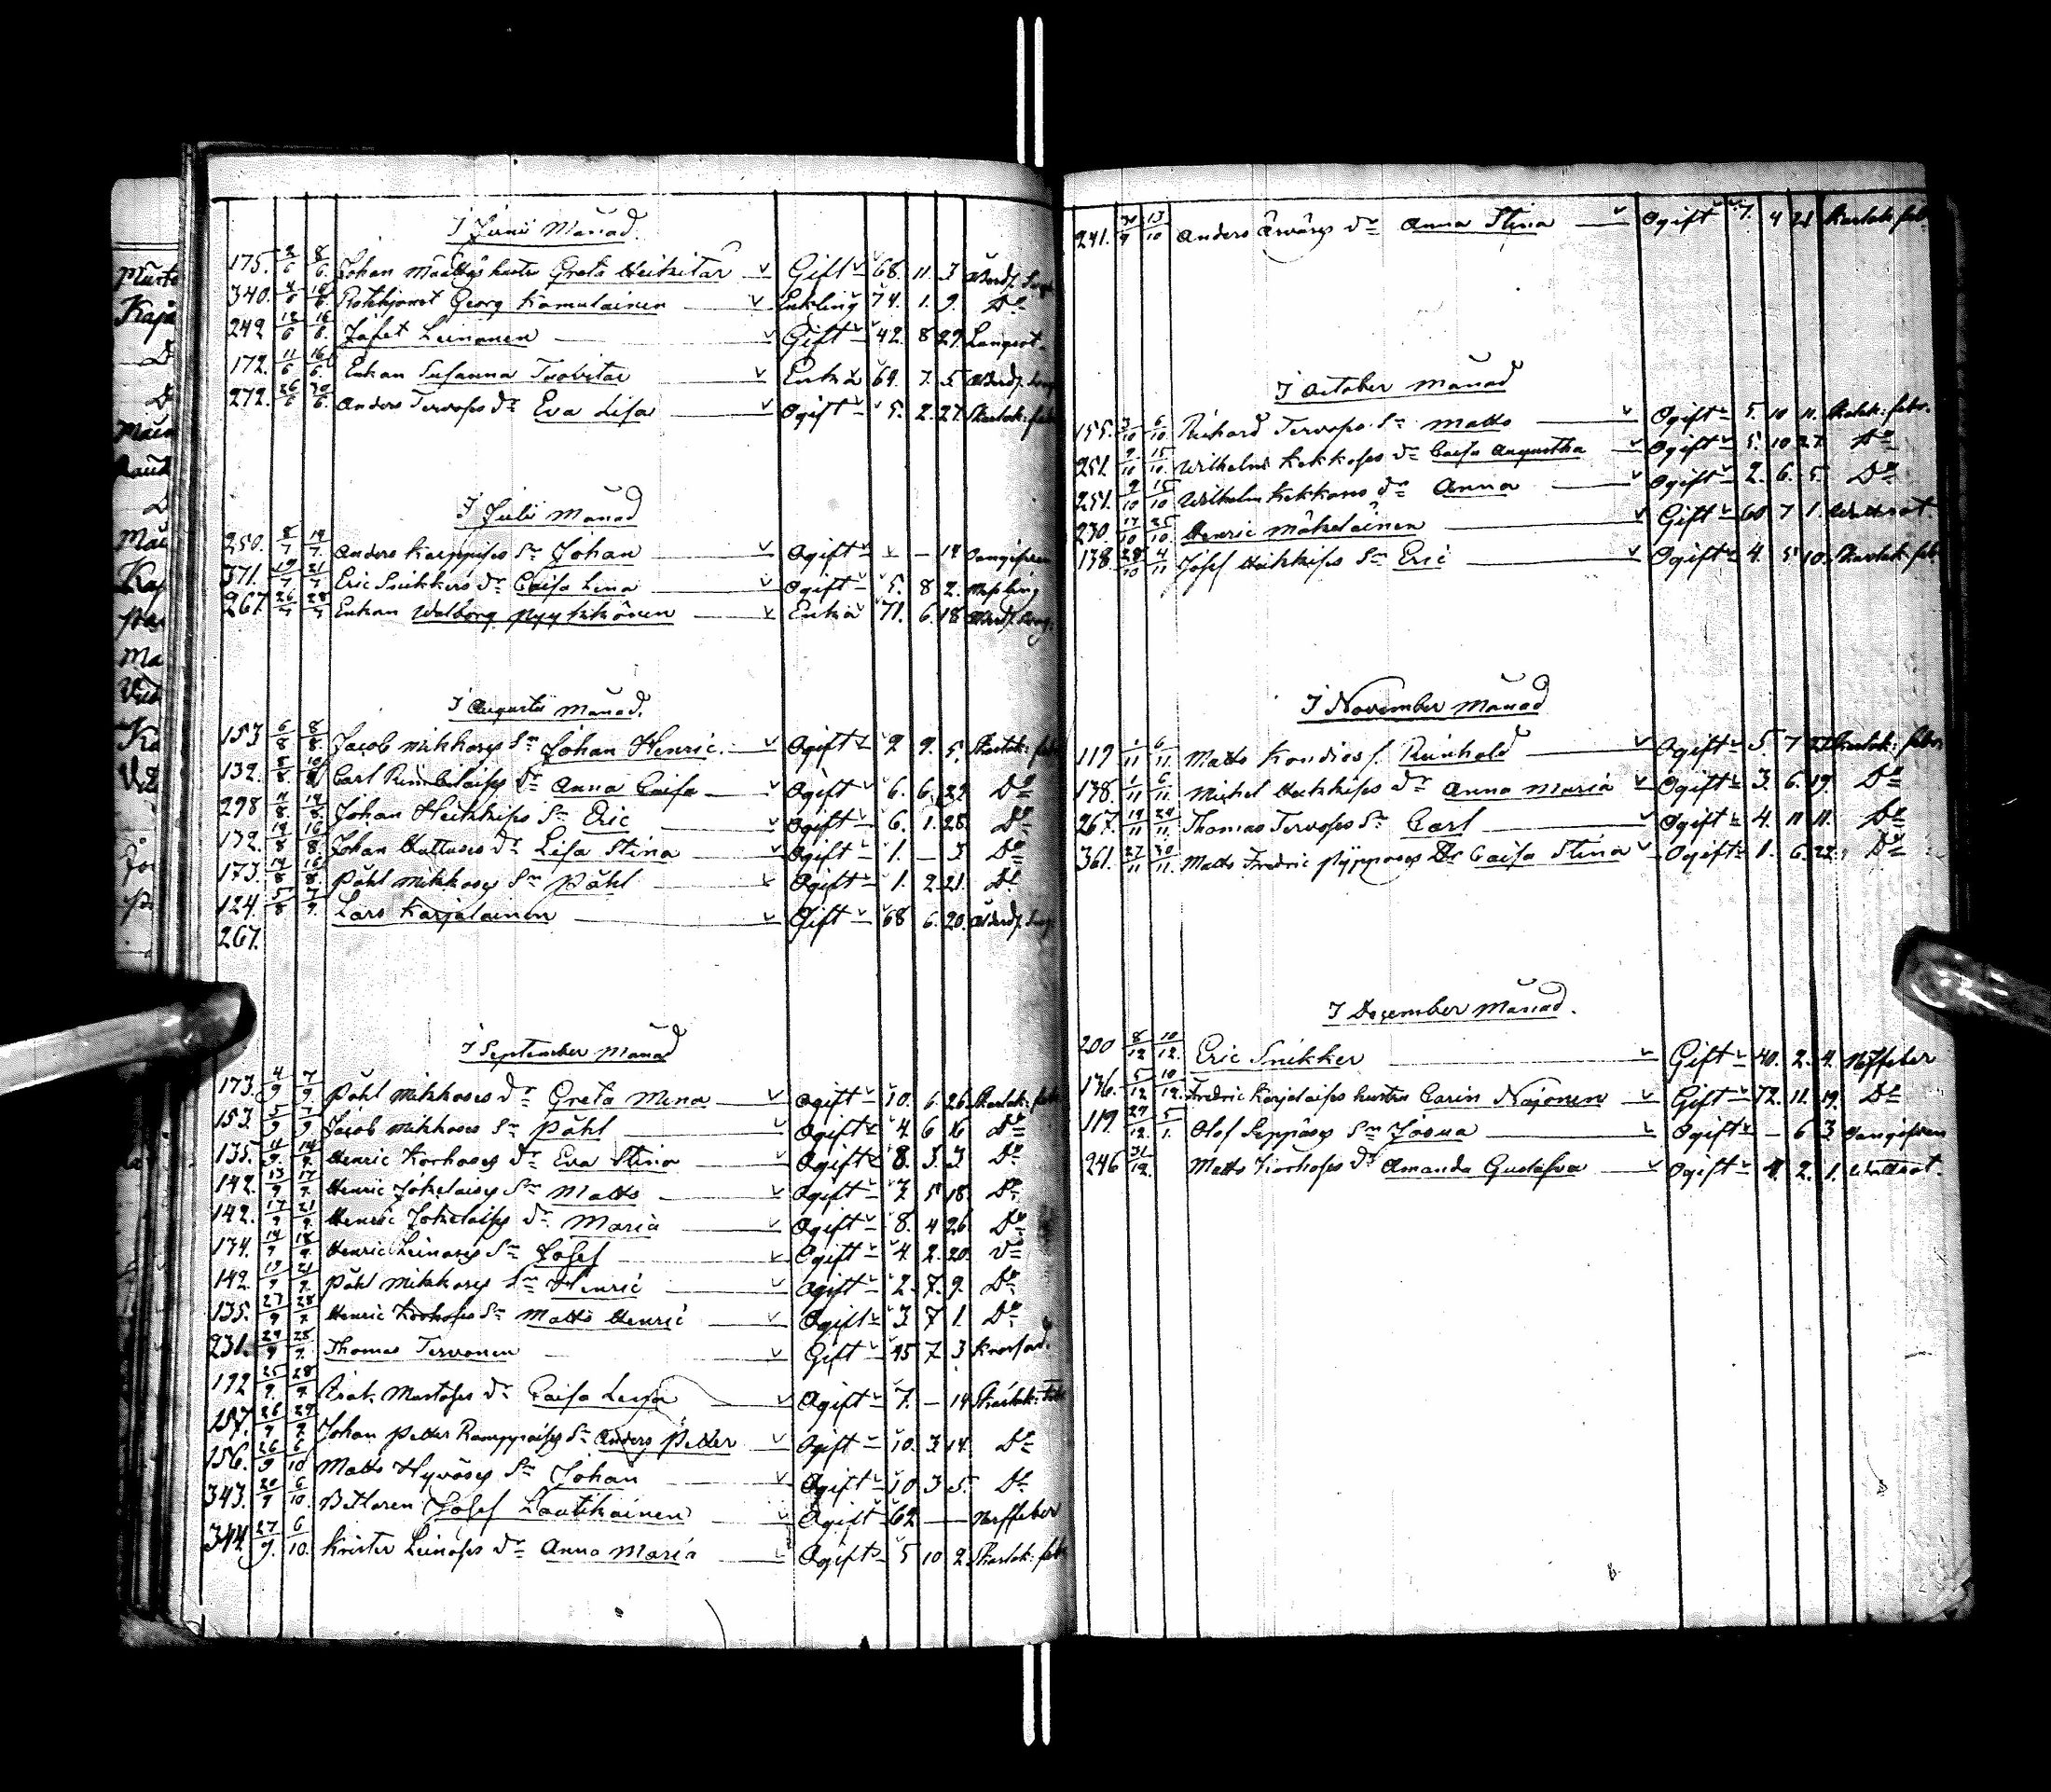 I Junii Månad.
175. 2/6 8/6. Johan Määttäs hustru Greta Heikitar Gift 68. 11. 3
340. 4/6 10/6. Rothjonet Georg Kamulainen Enkling 74. 1. 9. Do
242 12/6 16/6. Jafet Leinonen Gift 42. 8 29. Lungsot.
172. 11/6 16/6. Enkan Susanna Tuovitar Enka 64. 7. 5
272. 26/6 30/6. Anders Tervoses dr Eva Lisa Ogift 5. 2. 27. Skarlak: feb
I Julii Månad
250. 8/7 14/7. Anders Karppises Sn Johan Ogift — 14 Oangifven
371. 19/7 21/7 Eric Snikkers dr Caisa Lena Ogift 5. 8 2. Messling
267. 26/7 28/7 Enkan Walborg Pyykkönen Enka 71. 6. 18
I Augusti Månad.
153 6/8 8/8. Jacob Mikkoses Sn Johan Henric. Ogift 2 9. 5. Skarlak: feb
132. 8/8. 10/8 Carl dr Anna Caisa Ogift 6. 6. 22 Do
298 11/8. 14/8. Johan Heikkises Sn Eric Ogift 6. 1. 28. Do
172. 14/8 16/8. Johan Huttuses dr Lisa Stina Ogift 1. — 3 Do
173. 14/8 16/8. Påhl Mikkoses Sn Påhl Ogift 1. 2 21. Do
124. 5/8 7/9. Lars Karjalainen Gift 68 6. 20.
267.
I September Månad
173. 4/9 7/9. Påhl Mikkoses dr Greta Mina Ogift 10. 6. 26. Skarlak: feb
153. 5/9 7/9 Jacob Mikkoses Sn Påhl Ogift 4. 6 16 Do
135. 11/9. 14/9. Henric Korhoses dr Eva Stina Ogift 8. 3. 3 Do
142. 13/9 17/9. Henric Jokelaises Sn Matts Ogift 7. 5 18. Do
142. 17/9 21/9. Henric Jokelaises dr. Maria Ogift 8. 4 26. Do
174. 14/9 18/9. Henric Leinoses Sn Josef Ogift 4. 2. 20. Do
142. 19/9 21/9. Påhl Mikkoses Sn Henric Ogift 2. 7. 9. Do
135. 27/9 28/9. Henric Korhoses Sn Matts Henric Ogift 3 7 1. Do
231. 24/9 25/9. Thomas Tervonen Gift 45 7. 3
192 25/9. 28/9. Isak Mustoses dr Caisa Lena Ogift 7. — 14 Skarlak: feb
157. 26/9 29/9. Johan Petter Ramppaises Sn Anders Petter Ogift 10. 3. 14. Do
156. 26/9 6/10 Matts Hyväses Sn Johan Ogift 10 3 5. Do
343. 20/9 6/10. B Josef Lautikainen Ogift 62 — — Nerffeber
344. 27/9. 6/10. Krister Leinoses dr Anna Maria Ogift 5 10 2. Skarlak: feb
241. 30/9 13/10 Anders dr Anna Stina Ogift 7. 4 21 Skarlak: feb.
I October Månad
155. 3/10 6/10. Richard Tervoses Sn Matts Ogift 5. 10 11. Skarlak: febr.
251. 9/10 15/10. Wilhelm Kekkoses dr Caisa Augustha Ogift 5. 10 27. Do
251. 9/10 15/10 Wilhelm Kekkoses dr Anna Ogift 2. 6. 5. Do
230. 17/10 25/10. Henric Mäkeläinen Gift 60 7 1. Wattsot.
138. 28/10 4/11 Josef Heikkises Sn Eric Ogift 4. 5 10. Skarlak: feb.
I November Månad
119 1/11 6/11. Matts Kondios s. Reinhold Ogift 5. 7 Skarlak: febr.
138. 1/11 6/11. Michel Heikkises dr Anna Maria Ogift 3. 6. 19. Do
267. 19/11 24/11. Thomas Tervoses Sn Carl Ogift 4. 11 11. Do
361. 27/11 30/11. Matts Fredric Pyyppöses Dr Caisa Stina Ogift 1. 6. 22. Do
I December Månad.
200 8/12 10/12. Eric Snikker Gift 40. 2. 4. Nerffeber
136. 5/12 10/12. Fredric Karjalaises hustru Carin Najonen Gift 72. 11. 19. Do
119. 27/12. 5/1. Olof Seppäses Sn Josua Ogift — 6 3 Oangifven
246 31/12. Matts Korhoses dr Amanda Gustafva Ogift 4. 2. 1. Wattsot.